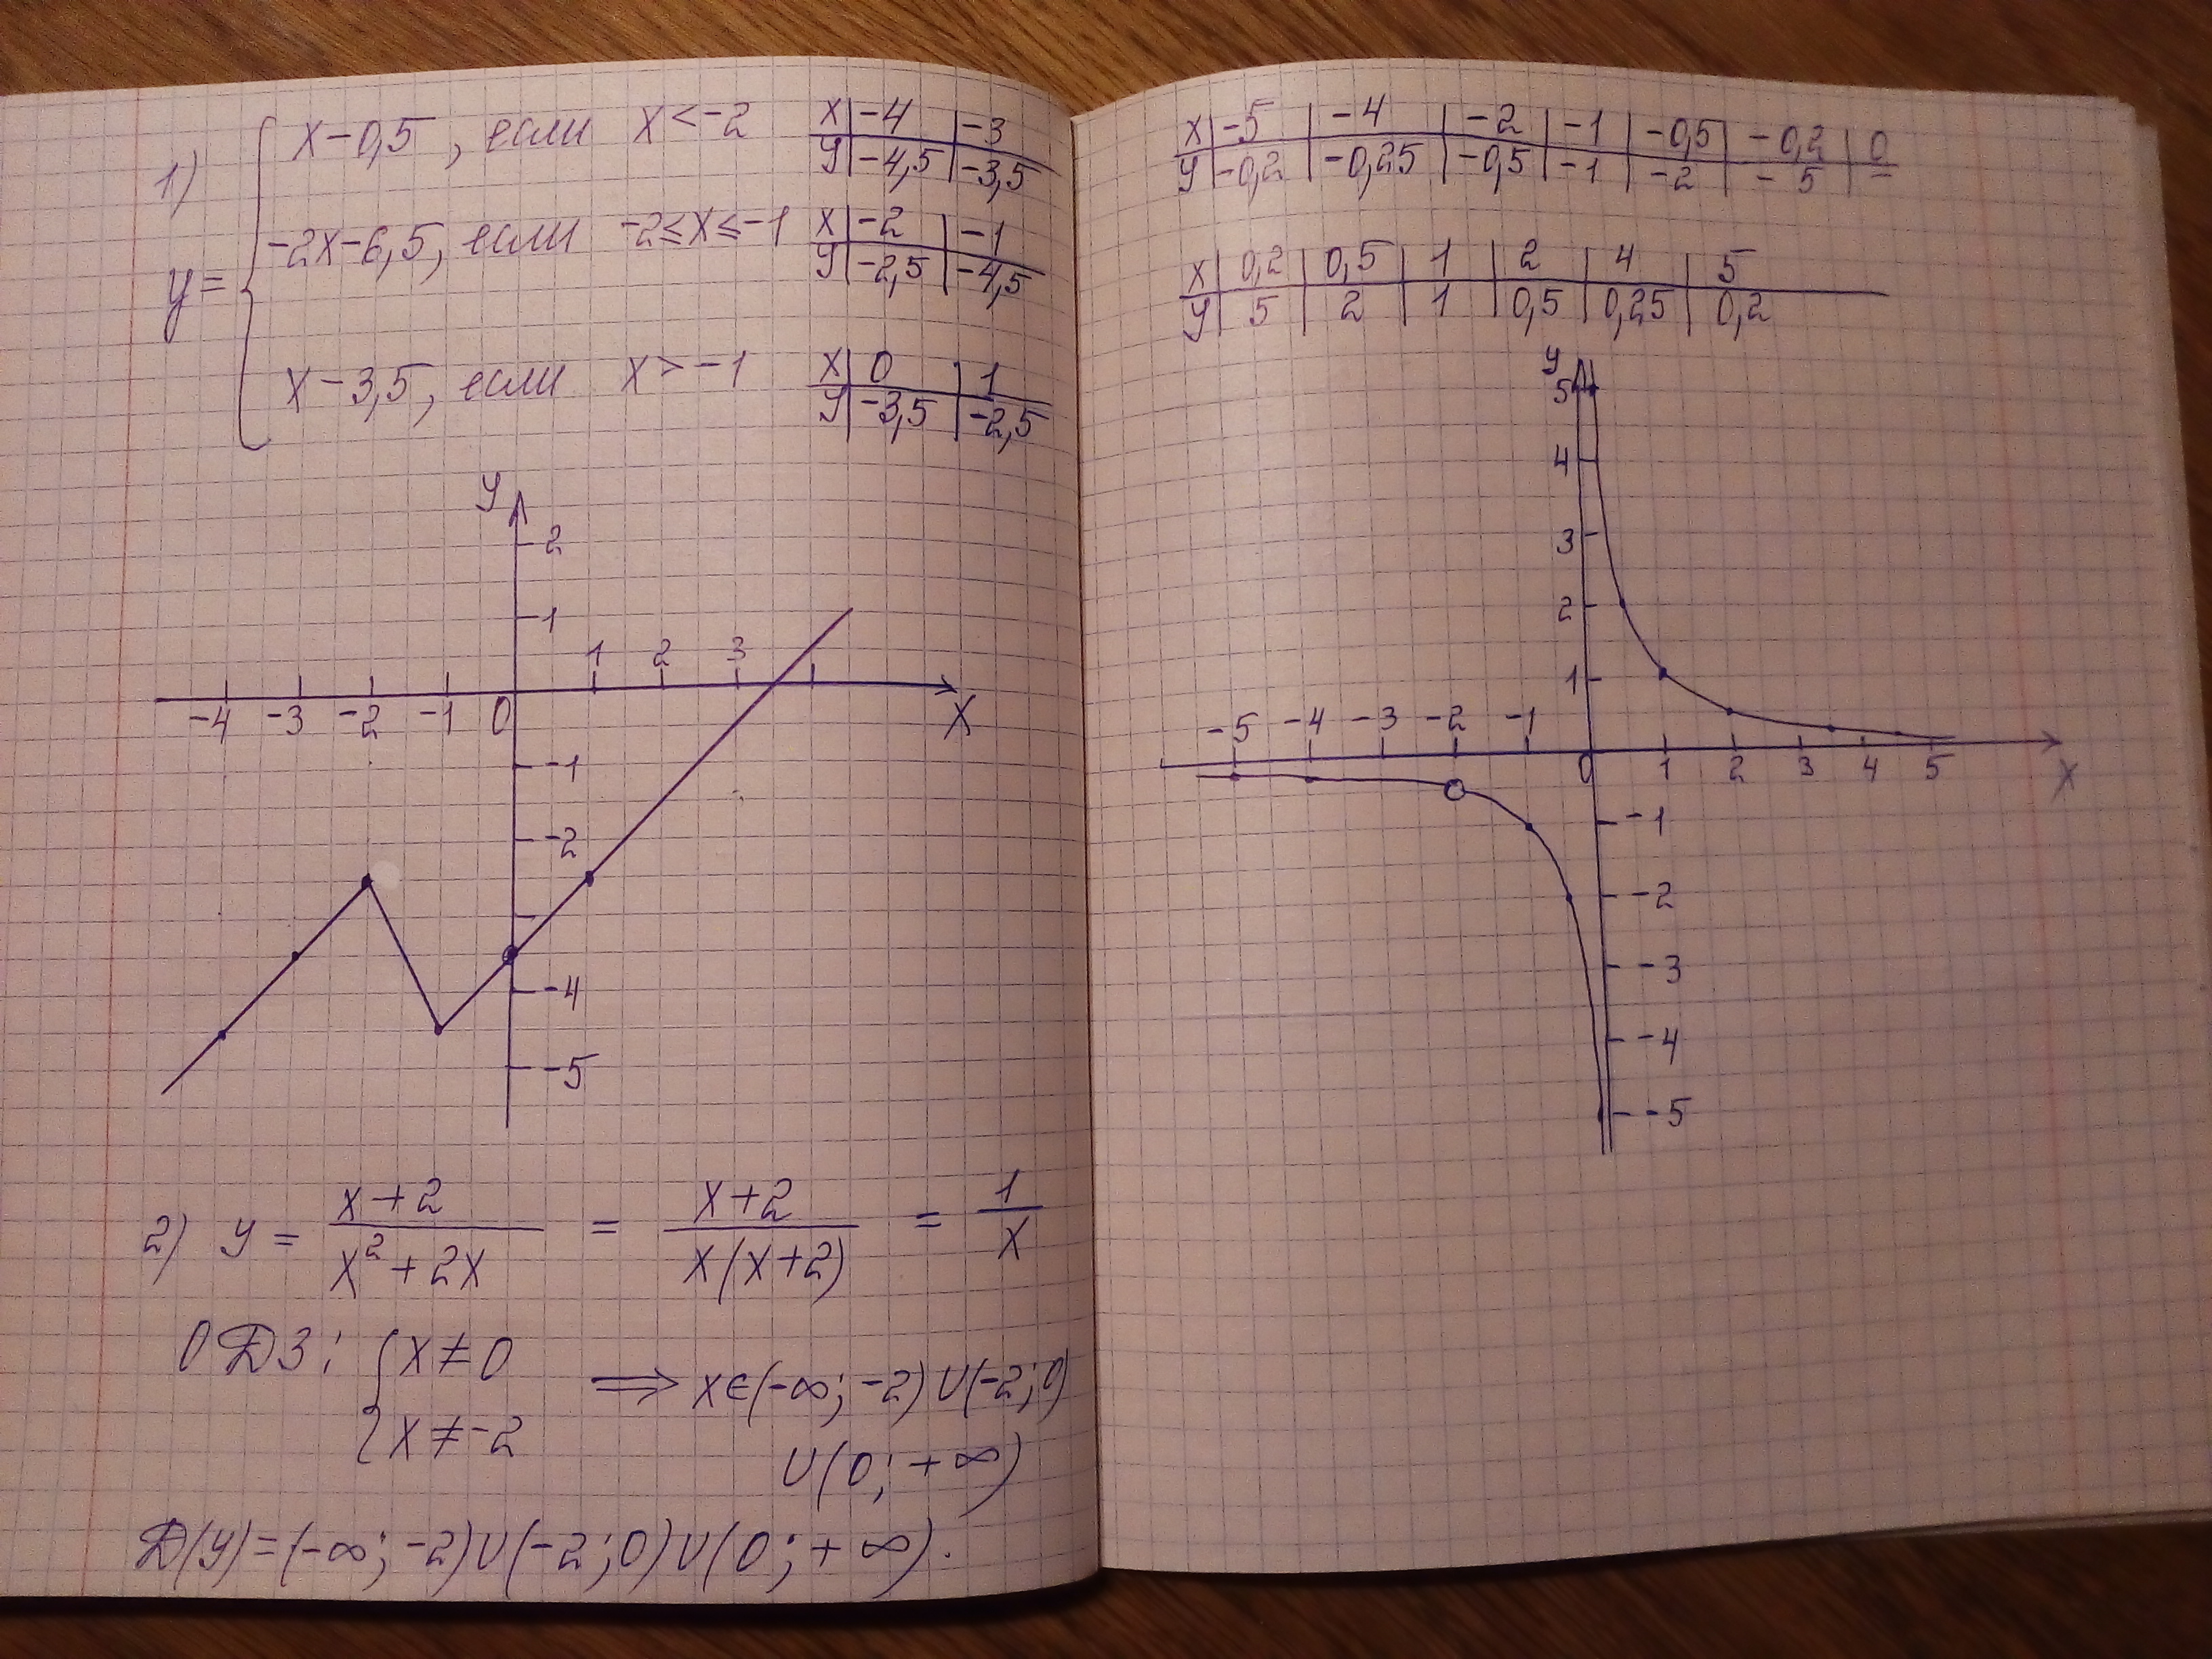 1) y = { x-0,5, если x < -2
x | -4 | -3
y | -4,5 | -3,5
-2x-6,5, если -2≤x≤-1
x | -2 | -1
y | -2,5 | -4,5
x-3,5, если x > -1
x | 0 | 1
y | -3,5 | -2,5
y
2
1
1 2 3
-4 -3 -2 -1 0 x
-1
-2
-4
-5
2) y = (x+2)/(x²+2x) = (x+2)/(x(x+2)) = 1/x
ОДЗ: { x≠0
x≠-2
⟹ x∈(-∞; -2)∪(-2; 0)
∪(0; +∞)
D(y)=(-∞; -2)∪(-2; 0)∪(0; +∞).
x | -5 | -4 | -2 | -1 | -0,5 | -0,2 | 0
y | -0,2 | -0,25 | -0,5 | -1 | -2 | -5 | –
x | 0,2 | 0,5 | 1 | 2 | 4 | 5
y | 5 | 2 | 1 | 0,5 | 0,25 | 0,2
y
5
4
3
2
1
-5 -4 -3 -2 -1
0 1 2 3 4 5 x
-1
-2
-3
-4
-5